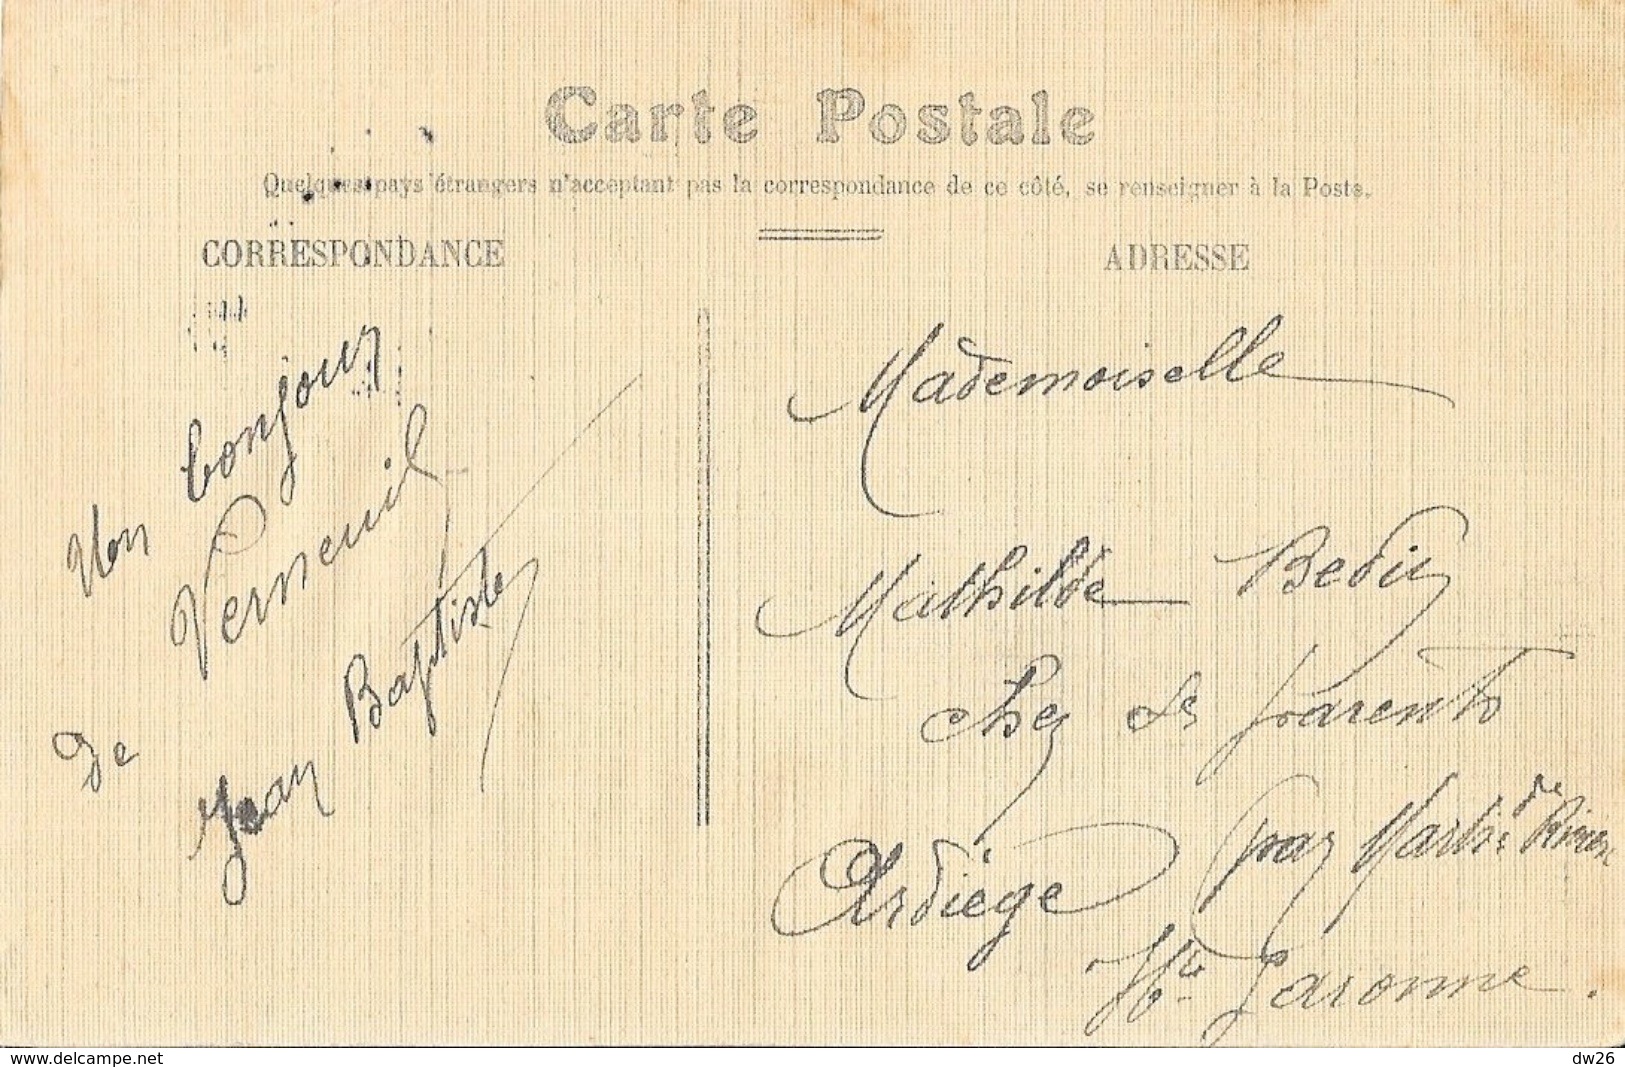 Carte Postale
Quelques pays étrangers n'acceptant pas la correspondance de ce côté, se renseigner à la Poste.
CORRESPONDANCE
ADRESSE
Un bonjour
De Verneuil
Jean Baptiste
Mademoiselle
Mathilde
chez ses parents
Ardiège par Martres de Rivière
Hte Garonne.
www.delcampe.net
dw26